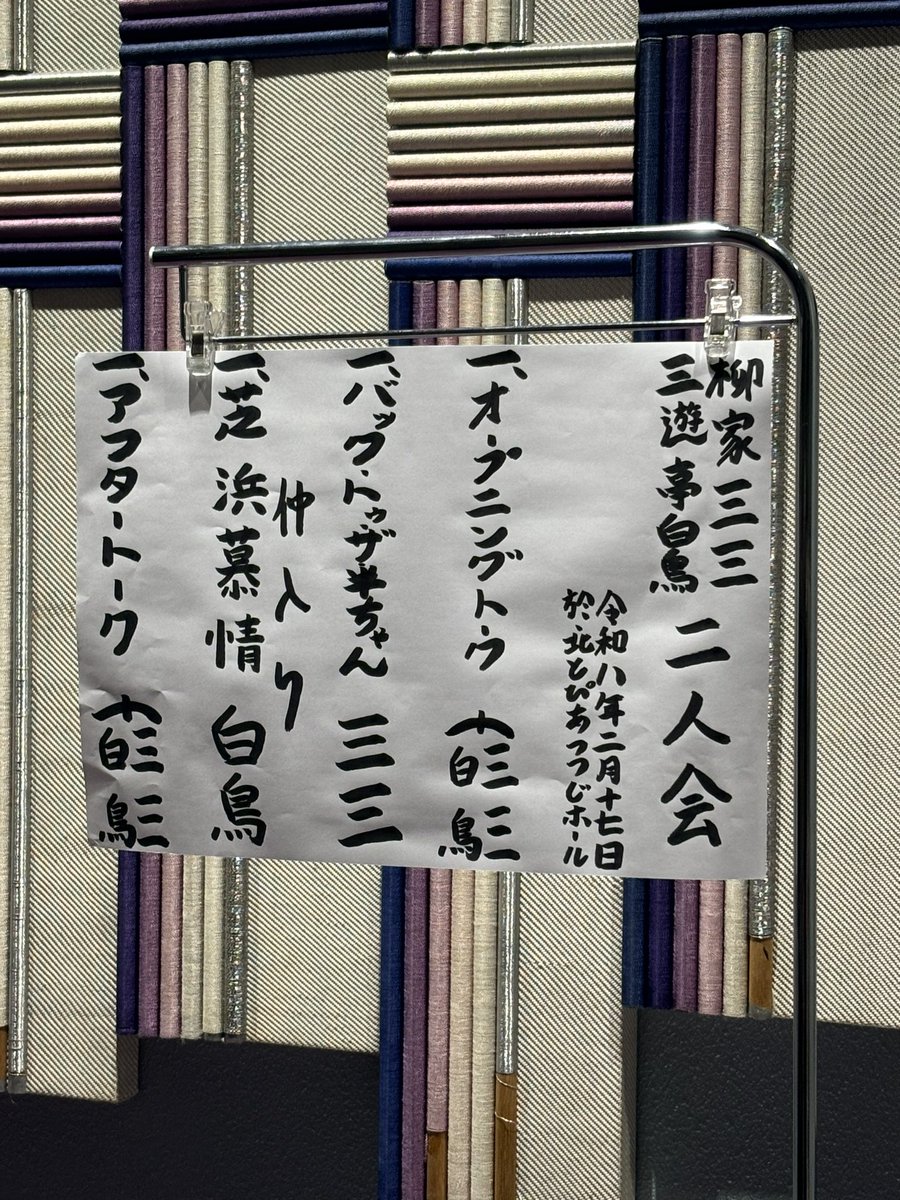 柳家三三
三遊亭白鳥
二人会
令和八年二月十七日
於・北とぴあつつじホール
一、オープニングトウク
三三
白鳥
一、バック・トゥ・ザ・半ちゃん 三三
仲入り
一、芝浜慕情 白鳥
一、アフタートーク
三三
白鳥